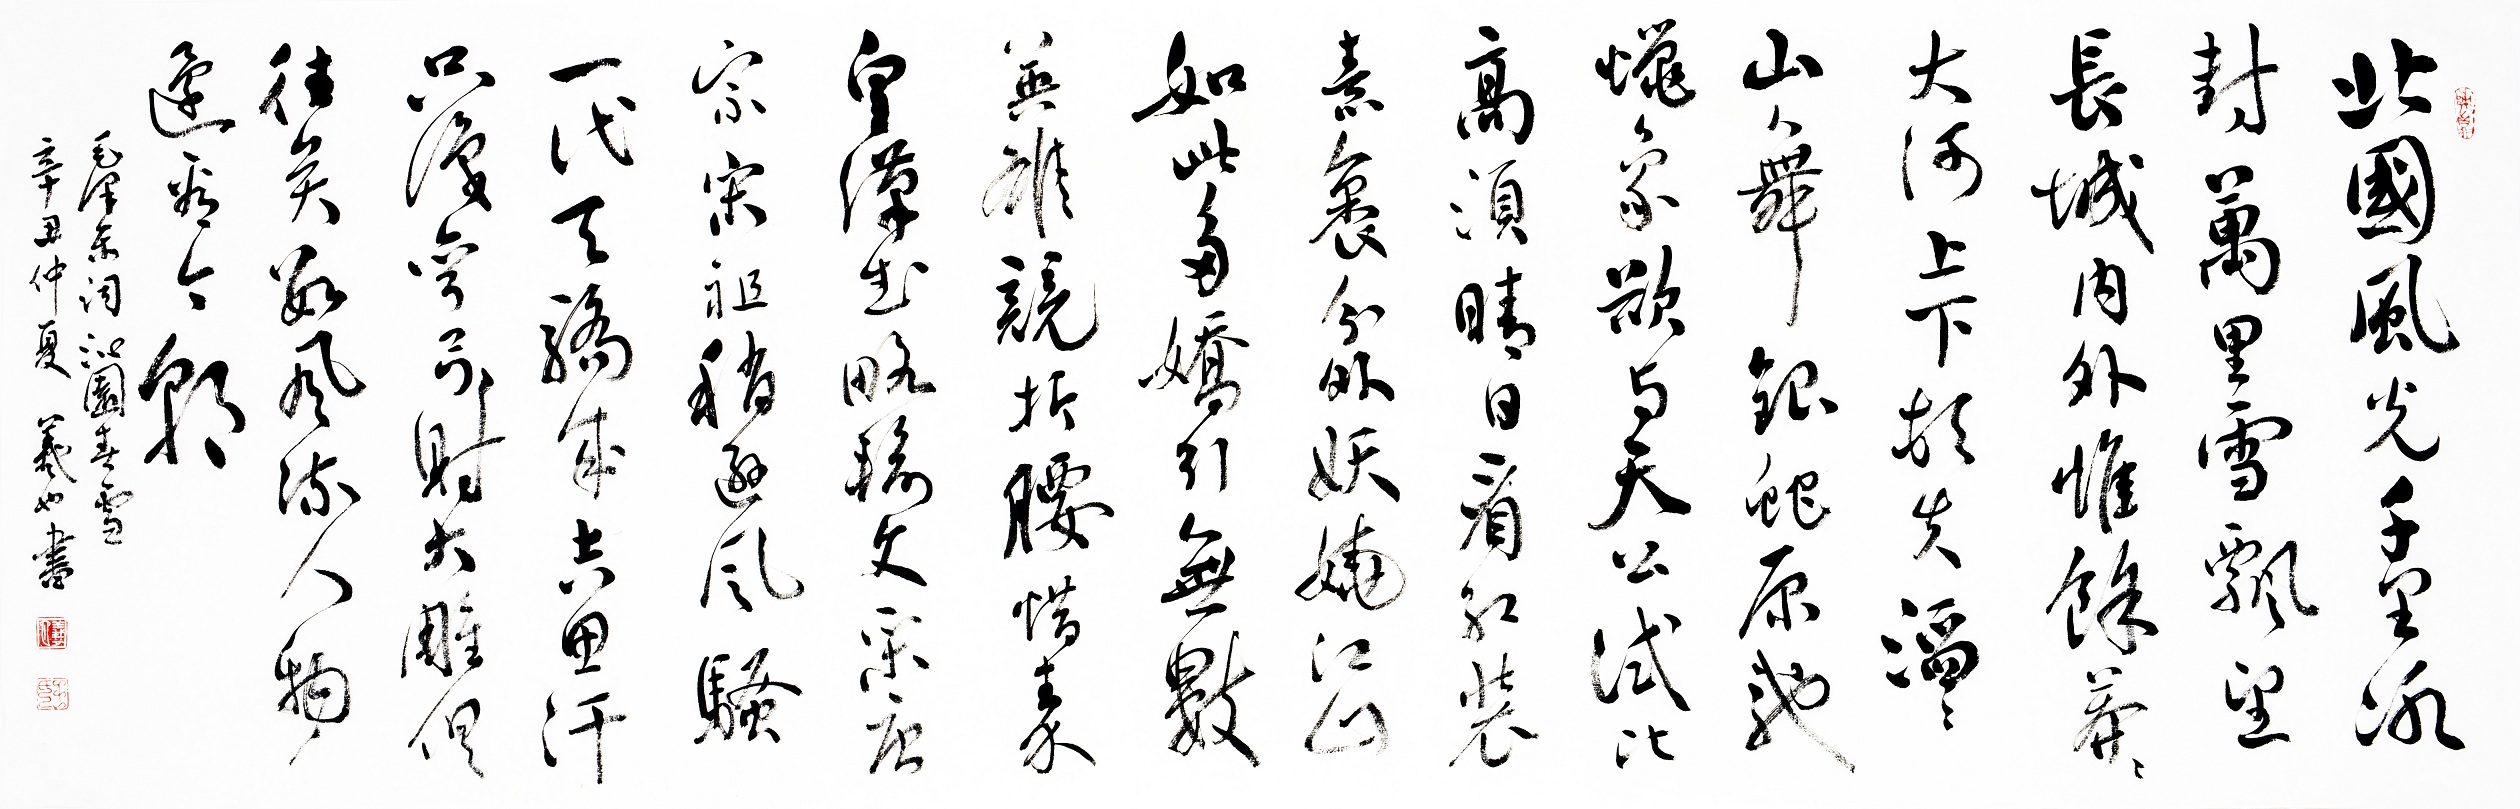 北國風光千里冰
封萬里雪飄望
長城內外惟餘莽〻
大河上下頓失滔〻
山舞銀蛇原馳
蠟象欲与天公試比
高須晴日看紅裝
素裹分外妖嬈江山
如此多嬌引無數
英雄競折腰惜秦
皇漢武略輸文采唐
宗宋祖稍遜風騷
一代天驕成吉思汗
只識彎弓射大雕俱
往矣數風流人物
還看今朝
毛澤東詞沁園春雪
辛丑仲夏 羲也書